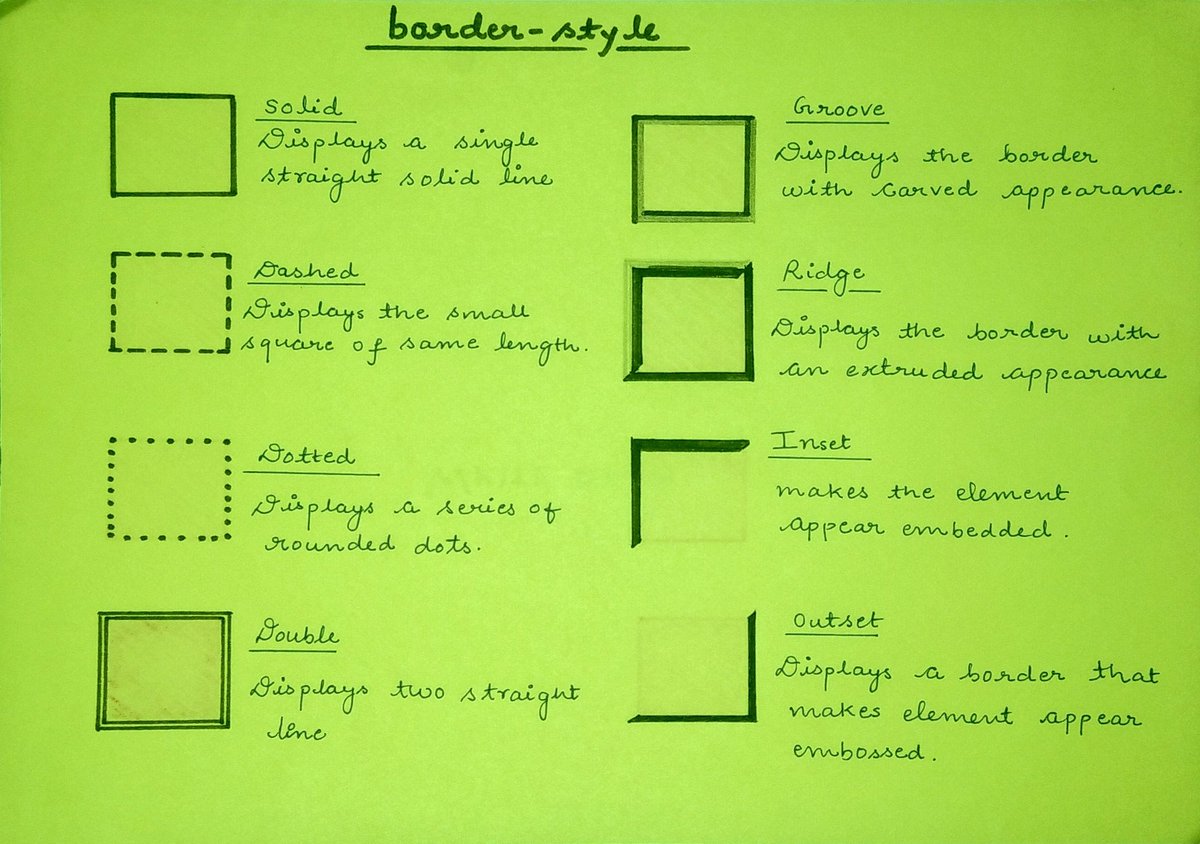 border-style
Solid
Displays a single
straight solid line
Dashed
Displays the small
square of same length.
Dotted
Displays a series of
rounded dots.
Double
Displays two straight
line
Groove
Displays the border
with carved appearance.
Ridge
Displays the border with
an extruded appearance
Inset
makes the element
appear embedded.
Outset
Displays a border that
makes element appear
embossed.